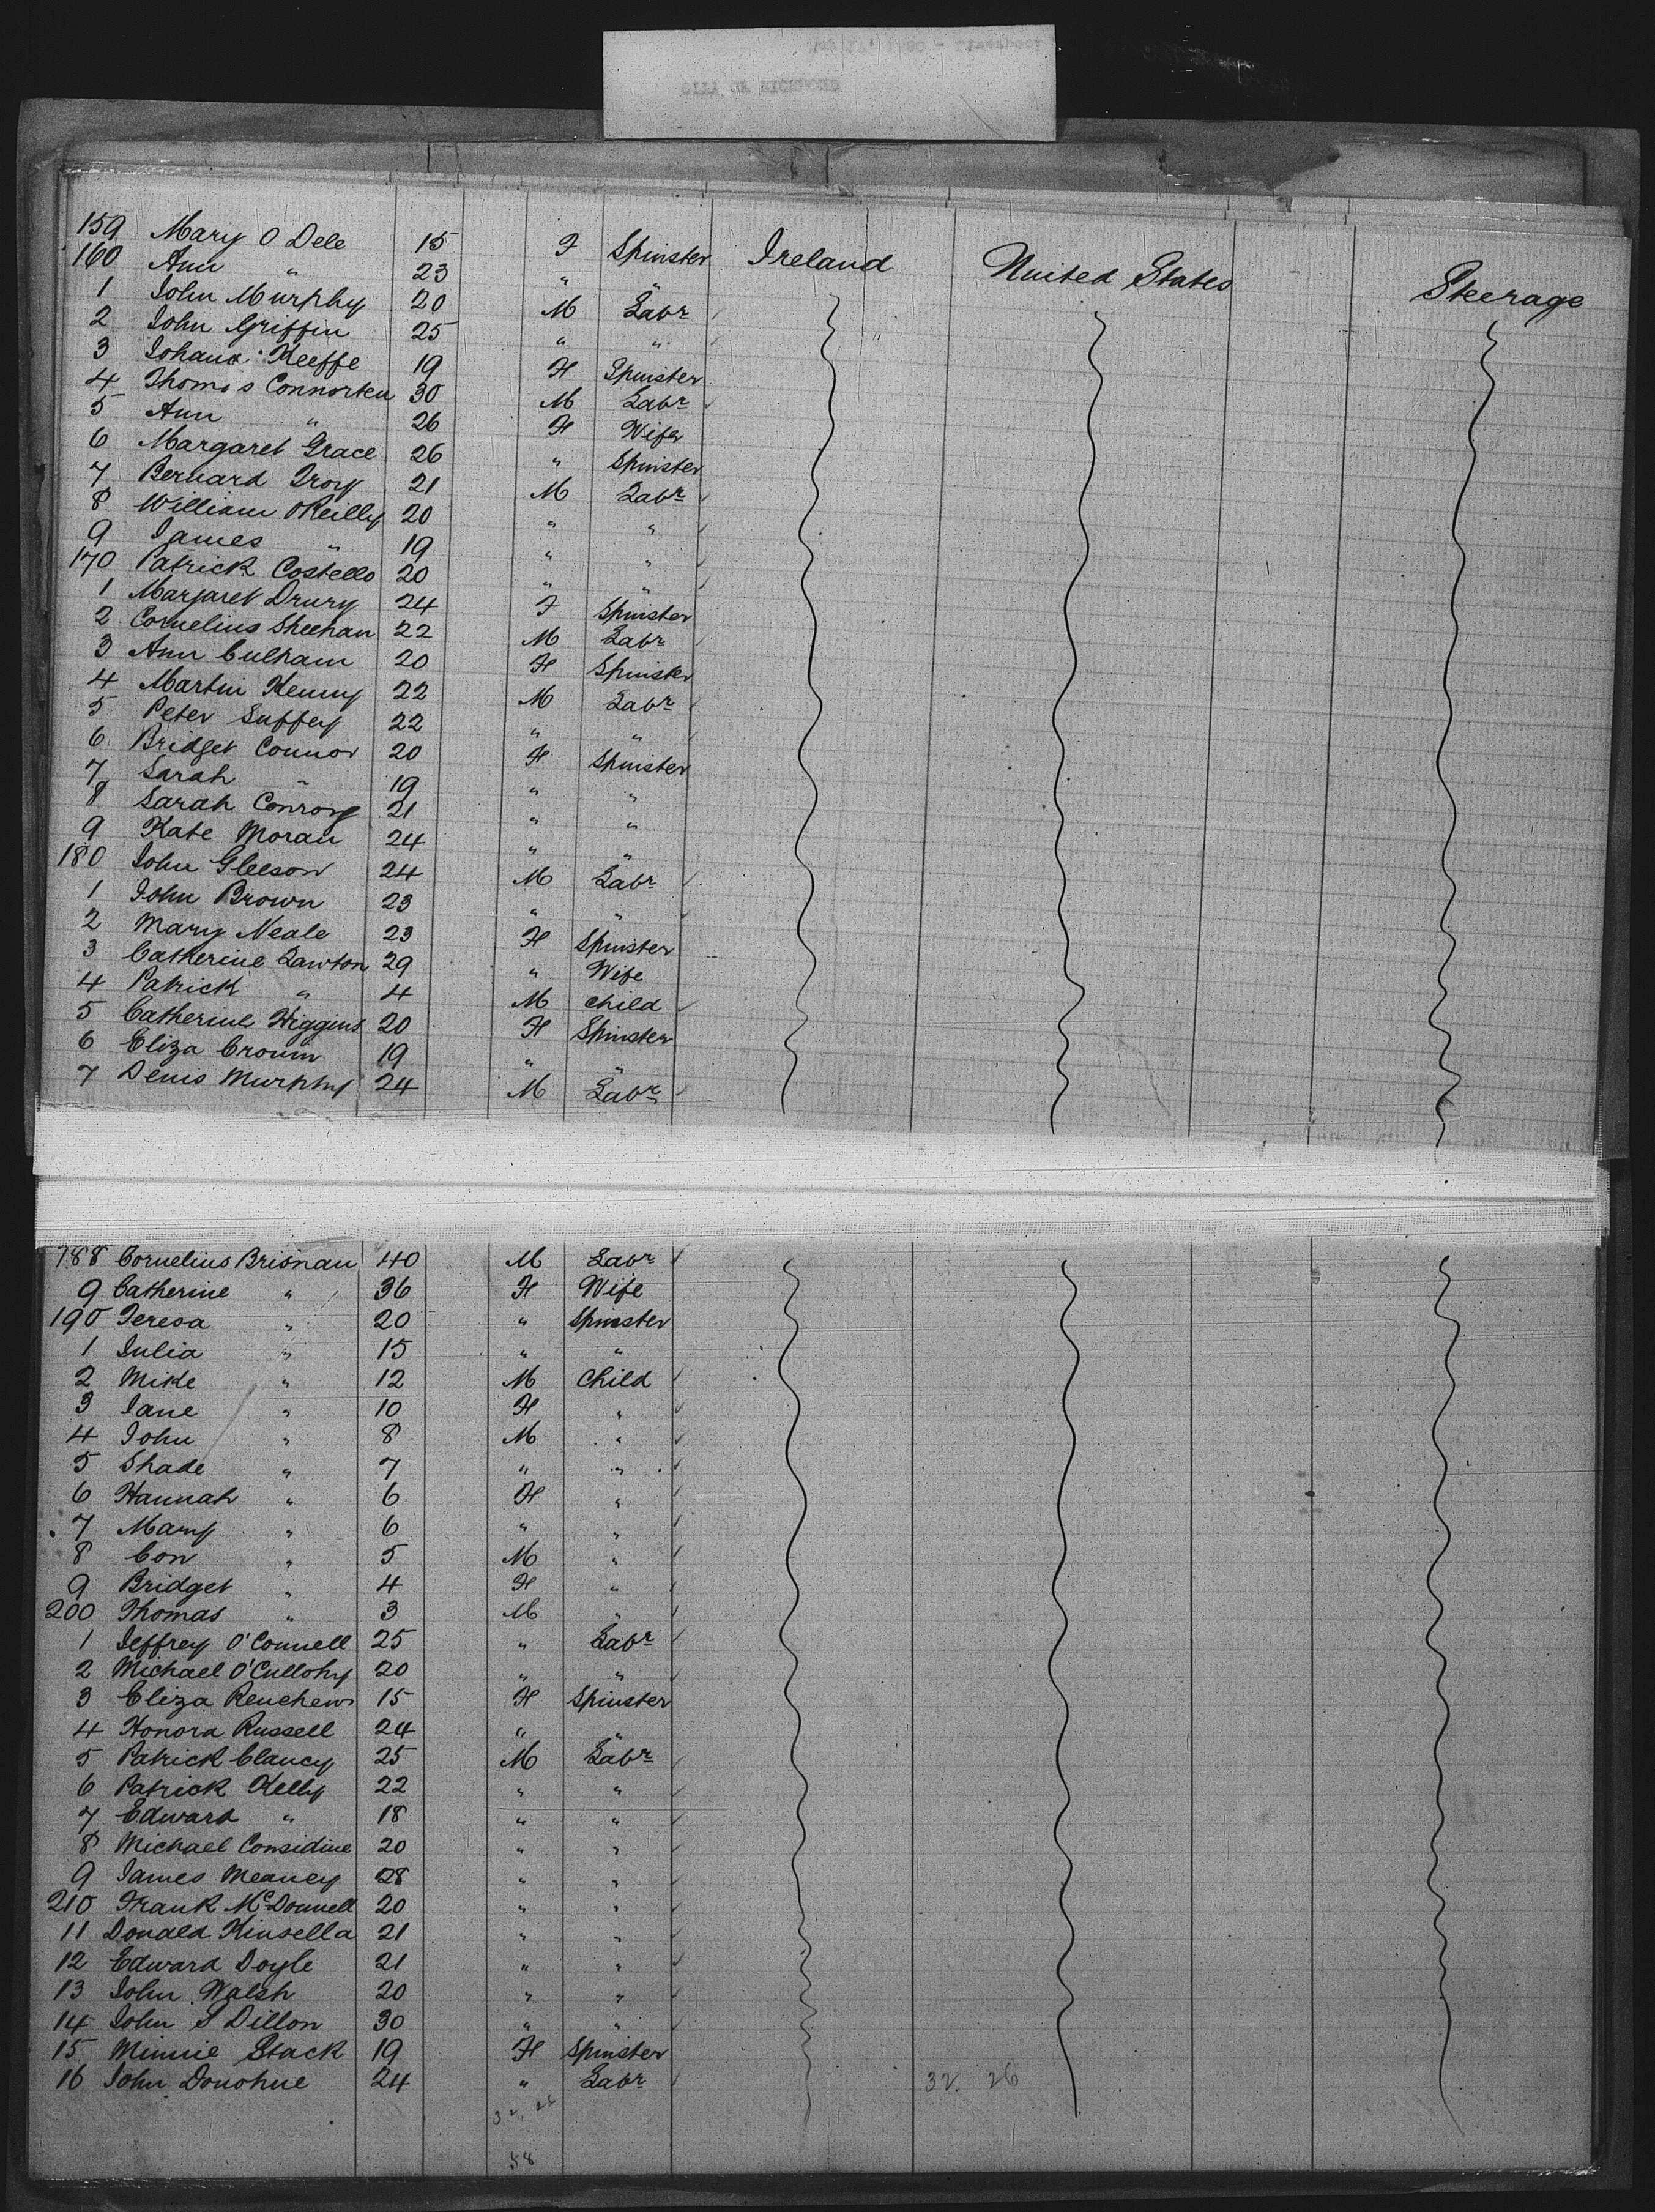 CITY OF RICHMOND
159 Mary O Dele 15 F Spinster Ireland United States Steerage
160 Ann " 23 " "
1 John Murphy 20 M Labr
2 John Griffin 25 " "
3 Johana Keeffe 19 F Spinster
4 Thomas 30 M Labr
5 Ann " 26 F Wife
6 Margaret Grace 26 " Spinster
7 Bernard Troy 21 M Labr
8 William OReilly 20 " "
9 James " 19 " "
170 Patrick Costello 20 " "
1 Margaret Drury 24 F Spinster
2 Cornelius Sheehan 22 M Labr
3 Ann Culham 20 F Spinster
4 Martin Kenny 22 M Labr
5 Peter Suffey 22 " "
6 Bridget Connor 20 F Spinster
7 Sarah " 19 " "
8 Sarah Conroy 21 " "
9 Kate Moran 24 " "
180 John Gleeson 24 M Labr
1 John Brown 23 " "
2 Mary Neale 23 F Spinster
3 Catherine Lawton 29 " Wife
4 Patrick " 4 M Child
5 Catherine Higgins 20 F Spinster
6 Eliza Cronin 19 " "
7 Denis Murphy 24 M Labr
188 Cornelius Brisnan 40 M Labr
9 Catherine " 36 F Wife
190 Teresa " 20 " Spinster
1 Julia " 15 " "
2 Mike " 12 M Child
3 Jane " 10 F "
4 John " 8 M "
5 Shade " 7 " "
6 Hannah " 6 F "
7 Mary " 6 " "
8 Con " 5 M "
9 Bridget " 4 F "
200 Thomas " 3 M "
1 Jeffrey O'Connell 25 " Labr
2 Michael O'Cullohy 20 " "
3 Eliza 15 F Spinster
4 Honora Russell 24 " "
5 Patrick Clancy 25 M Labr
6 Patrick Kelly 22 " "
7 Edward " 18 " "
8 Michael Considine 20 " "
9 James Meaney 28 " "
210 Frank McDonnell 20 " "
11 Donald Kinsella 21 " "
12 Edward Doyle 21 " "
13 John Walsh 20 " "
14 John S Dillon 30 " "
15 Minnie Stack 19 F Spinster
16 John Donohue 24 " Labr 32. 26
32. 26
58